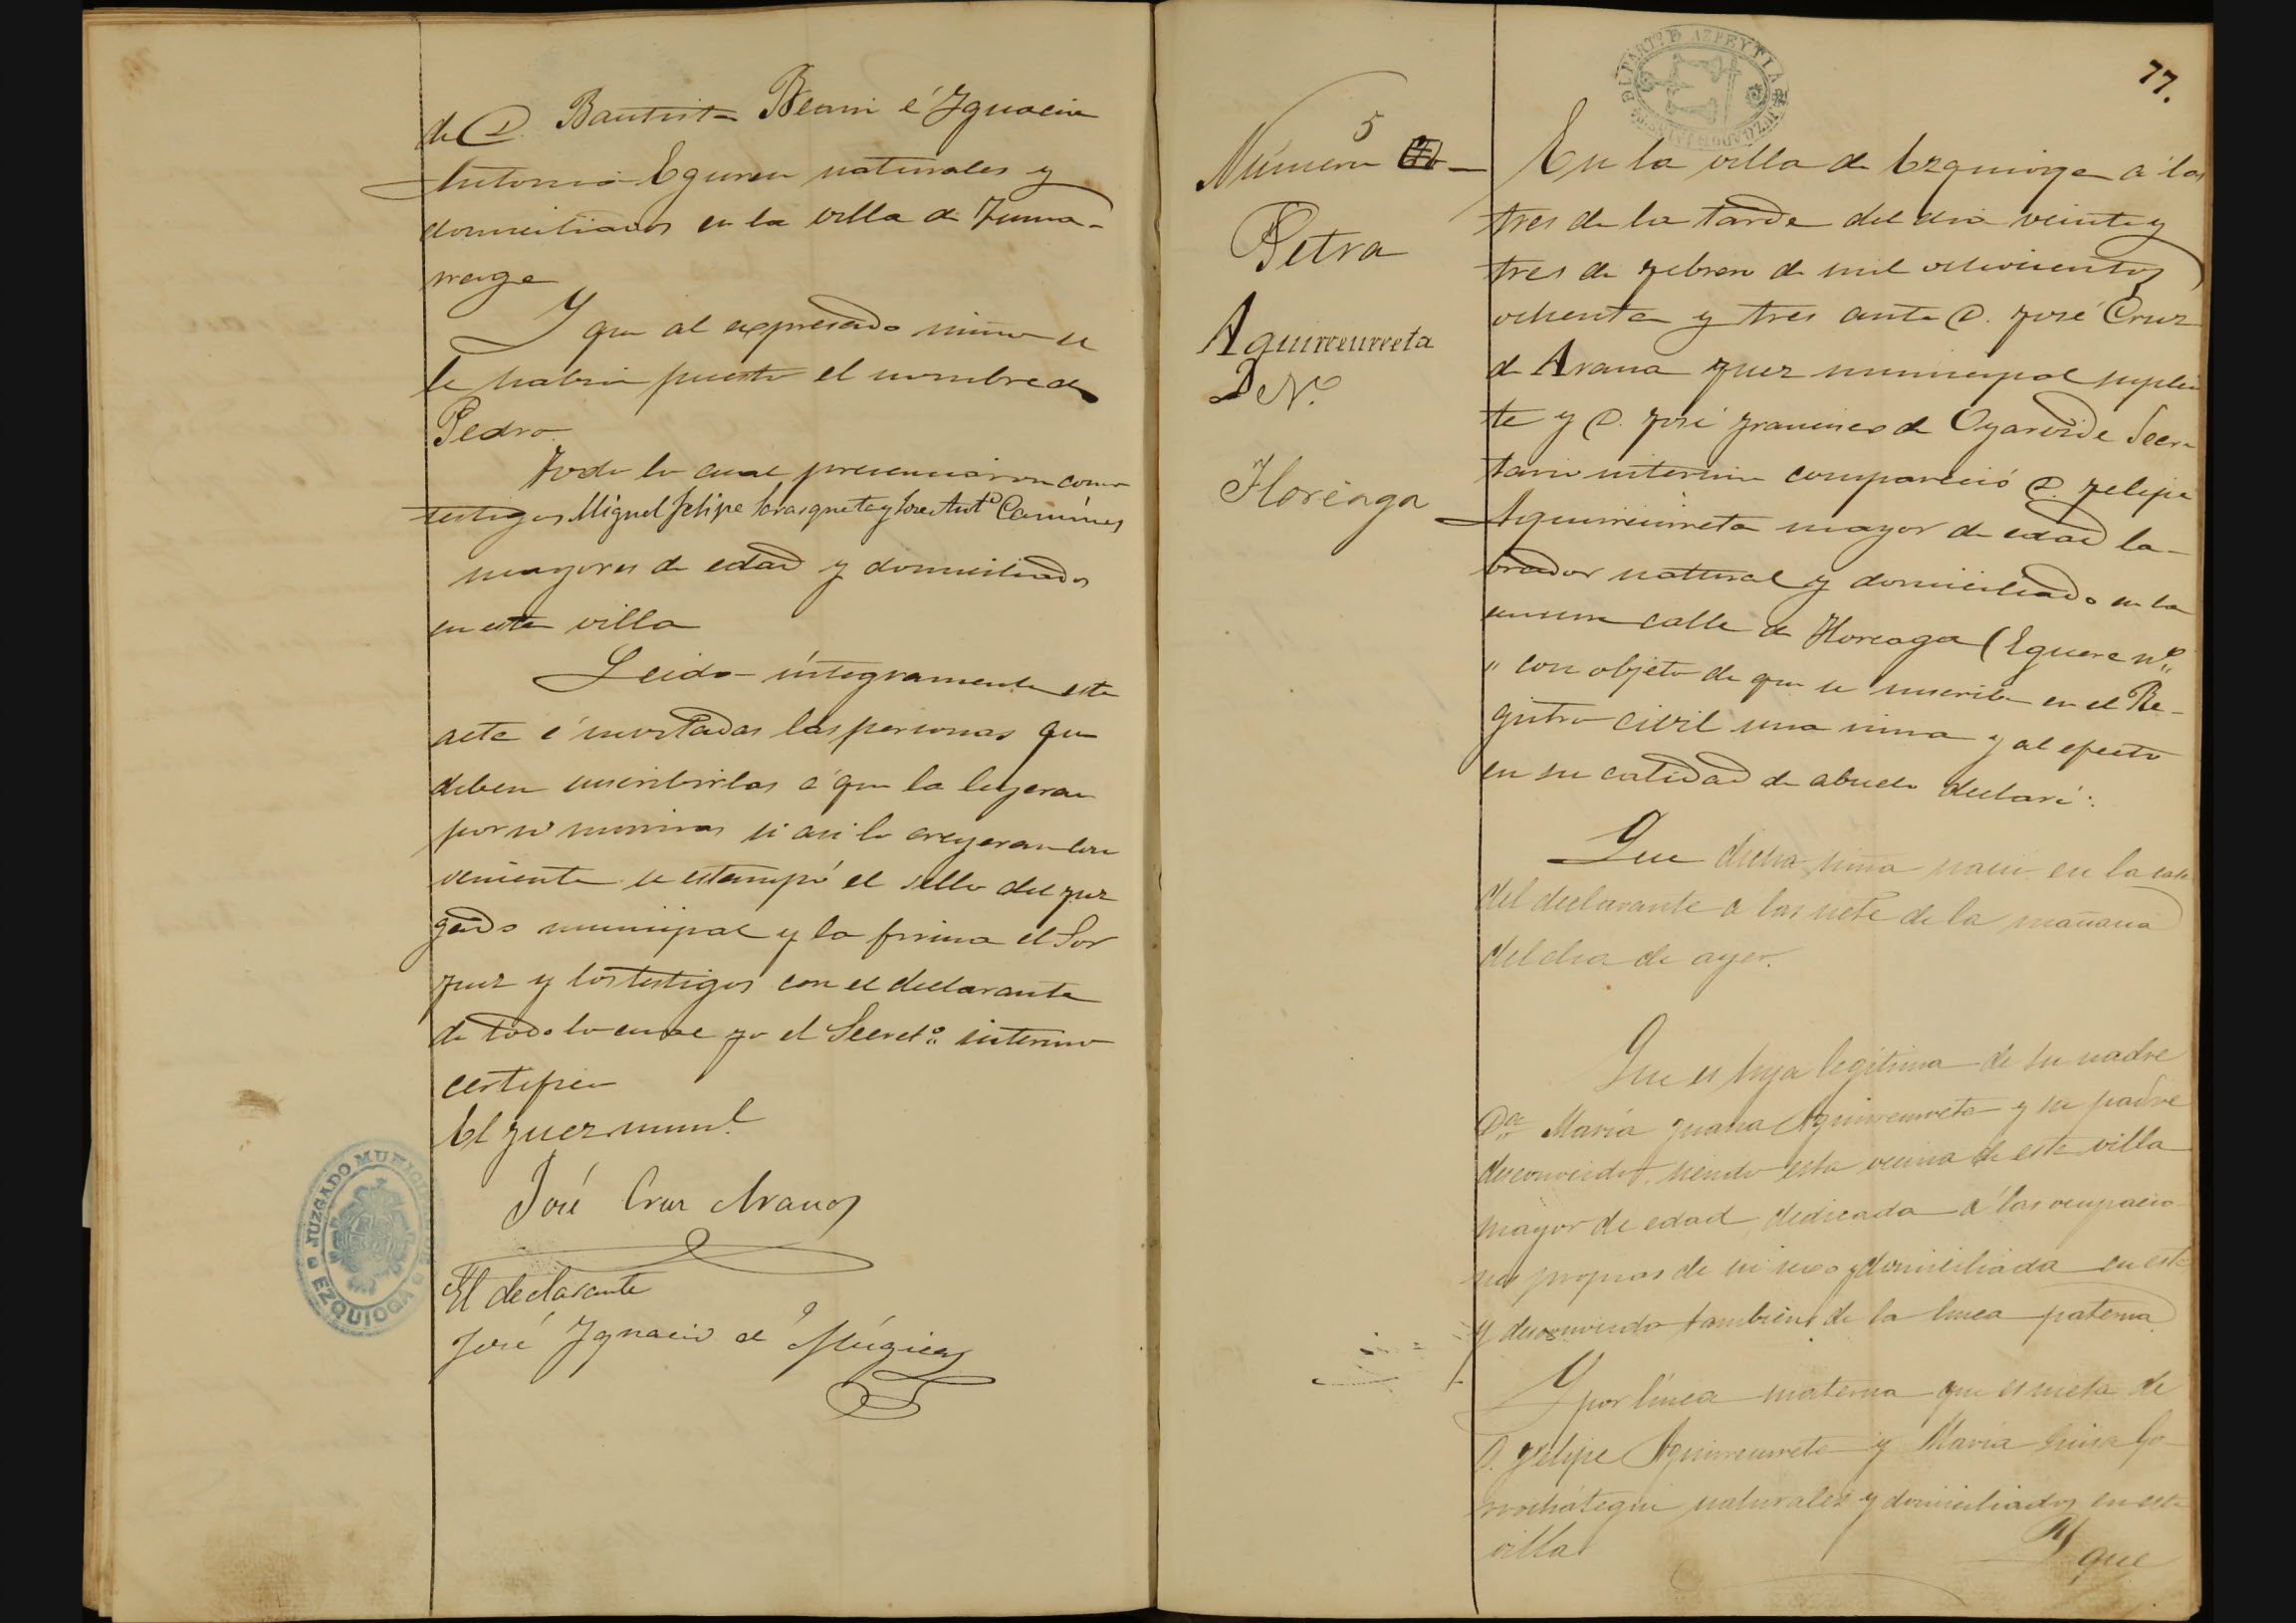 de D. Bautista é Ygnacia
Antonia Eguren naturales y
domiciliados en la villa de Zuma-
rraga
Y que al expresado niño se
le habia puesto el nombre de
Pedro.
Todo lo cual presenciaron como
testigos Miguel Felipe y José Antº
mayores de edad y domiciliados
en esta villa
Leida integramente esta
acta é invitadas las personas que
deben suscribirlas á que la leyeran
por si mismas si asi lo creyeran con
veniente se estampó el sello del juz
gado municipal y la firma el Sor
juez y los testigos con el declarante
de todo lo cual yo el Secretº interino
certifico
El juez munl
José Cruz Arana
JUZGADO MUNICIPAL
EZQUIOGA
El declarante
José Ygnacio de Múgica
77.
PARTº DE AZPEYTIA
Número 5
Petra
Aguirreurreta
Floreaga
En la villa de Ezquioga á las
tres de la tarde del dia veinte y
tres de Febrero de mil ochocientos
ochenta y tres ante D. José Cruz
de Arana juez municipal suplen
te y D. José Francisco de Oyarvide Secre
tario interino compareció D. Felipe
Aguirreurreta mayor de edad la-
brador natural y domiciliado en la
misma calle de Floreaga (Eguere nº
" con objeto de que se inscriba en el Re-
gistro civil una niña y al efecto
en su calidad de abuelo declaró:
Que dicha niña nació en la casa
del declarante a las siete de la mañana
del dia de ayer.
Que es hija legitima de su madre
Dª Maria Juana Aguirreurreta y su padre
desconocido, siendo esta vecina de esta villa
mayor de edad dedicada á las ocupacio
nes propias de su sexo y domiciliada en esta
y desconocido tambien de la linea paterna
Y por línea materna que es nieta de
D. Felipe Aguirreurreta y Maria Luisa Go
rrochátegui naturales y domiciliados en esta
villa
Y que